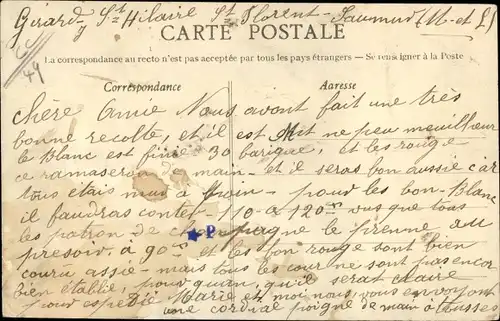 Girard St Hilaire St Florent - Saumur (M et L)
CARTE POSTALE
La correspondance au recto n'est pas acceptée par tous les pays étrangers — Se renseigner à la Poste
Correspondance
Adresse
49
chère Amie Nous avont fait une très
bonne recolte, et il est ne peu meuilheur
le Blanc est finie 30 barique, et les rouge
ce ramaseron main - et il seras bon aussie car
tous etais mur a - pour les bon-Blanc
il faudras conter 110 a 120 vus que tous
les patron de champagne le prenne au
presoir, à 90 et les bon rouge sont bien
couru assie - mais tous les cour ne sont pas encor
bien établie, pourquan, qu'il serat claire
pour expedie Marie et moi nous, vous envoyont
une cordial poigné de main à tousses
P